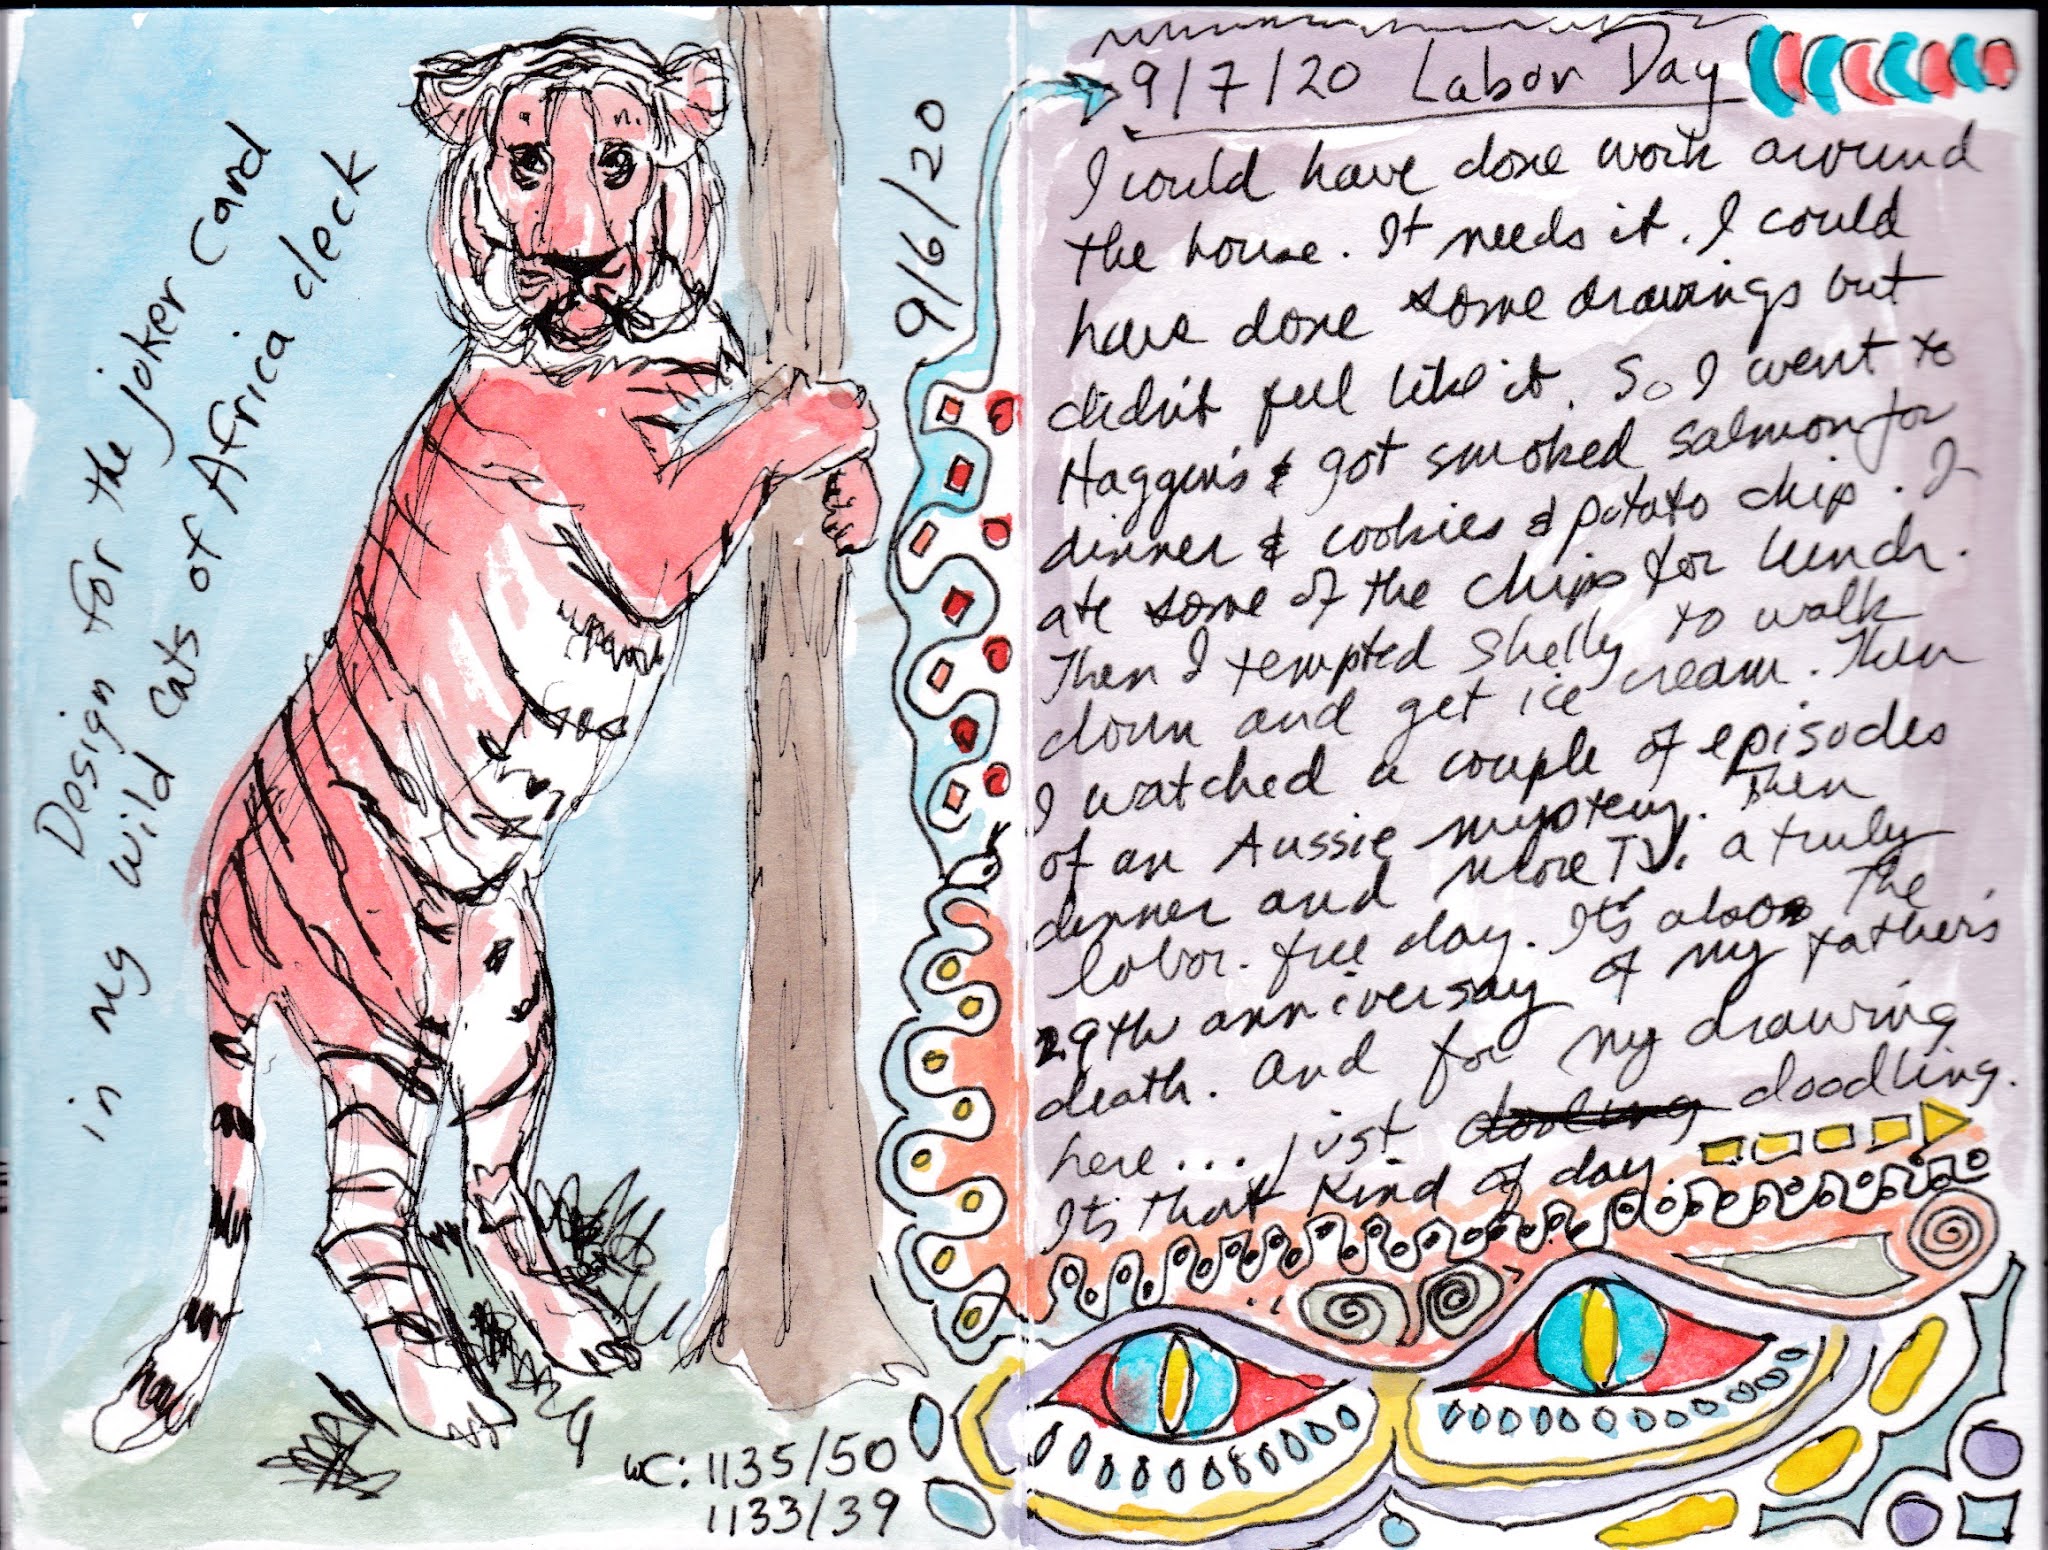 Design for the joker card
in my wild cats of Africa deck
9/6/20
WC: 1135/50
1133/39
9/7/20 Labor Day
I could have done work around
the house. It needs it. I could
have done some drawings but
didn't feel like it. So I went to
Haggin's & got smoked salmon for
dinner & cookies & potato chip. I
ate some of the chips for lunch.
Then I tempted Shelly to walk
down and get ice cream. Then
I watched a couple of episodes
of an Aussie mystery. Then
dinner and more TV. a truly
labor-free day. It's also the
29th anniversay of my father's
death. And for my drawing
here... just doodling.
It's that kind of day.